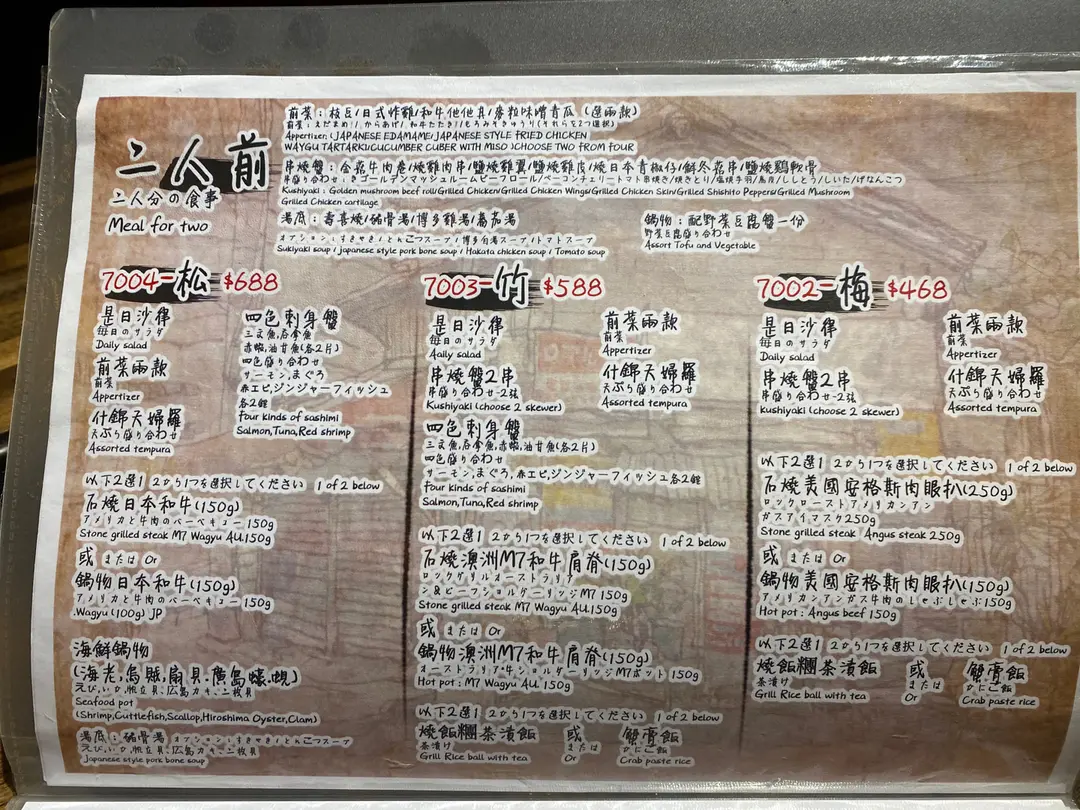 二人前
二人分の食事
Meal for two
前菜：枝豆/日式炸雞/和牛他他真/麥粒味噌青瓜（選兩款）
前菜：えだまめ/からあげ/和牛たたき/もろみきゅうり(それらを2つ選択)
Appertizer: (JAPANESE EDAMAME/JAPANESE STYLE FRIED CHICKEN
WAYGU TARTARKI/CUCUMBER CUBER WITH MISO )CHOOSE TWO FROM FOUR
串燒盤：金菇牛肉卷/燒雞肉串/鹽燒雞翼/鹽燒雞皮/燒日本青椒仔/鮮冬菇串/鹽燒鷄軟骨
Kushiyaki : Golden mushroom beef roll/Grilled Chicken/Grilled Chicken Wings/Grilled Chicken Skin/Grilled Shishito Peppers/Grilled Mushroom
Grilled Chicken cartilage
湯瓜：壽喜燒/豬骨湯/博多雞湯/蕃茄湯
オプション：すきやき/とんこつスープ/博多白湯スープ/トマトスープ
Sukiyaki soup / japanese style pork bone soup / Hakata chicken soup / Tomato soup
鍋物：配野菜豆腐盤一份
野菜豆腐盛り合わせ
Assort Tofu and Vegetable
7004-松 $688
是日沙律
毎日のサラダ
Daily salad
前菜兩款
前菜
Appertizer
什錦天婦羅
天ぷら盛り合わせ
Assorted tempura
四色刺身盤
三文魚,吞拿魚
赤蝦,油甘魚(各2片)
四色盛り合わせ
サーモン,まぐろ
赤エビ,ジンジャーフィッシュ
各2個
four kinds of sashimi
Salmon,Tuna,Red shrimp
以下2選1 2から1つを選択してください 1 of 2 below
石燒日本和牛(150g)
アメリカと牛肉のバーベキュー 150g
Stone grilled steak M7 Wagyu AU.150g
或 または Or
鍋物日本和牛(150g)
アメリカと牛肉のバーベキュー 150g
.Wagyu (100g) JP
海鮮鍋物
(海老,烏賊,扇貝.廣島蠔.蜆)
えび,いか,帆立貝.広島カキ.二枚貝
Seafood pot
(Shrimp,Cuttlefish,Scallop,Hiroshima Oyster,Clam)
湯底：豬骨湯 オプション：すきやき/とんこつスープ
えび,いか,帆立貝.広島カキ.二枚貝
Japanese style pork bone soup
7003-竹 $588
是日沙律
毎日のサラダ
Aaily salad
串燒盤2串
串盛り合わせ-2弦
Kushiyaki (choose 2 skewer)
四色刺身盤
三文魚,吞拿魚,赤蝦,油甘魚(各2片)
四色盛り合わせ
サーモン,まぐろ,赤エビ,ジンジャーフィッシュ各2個
four kinds of sashimi
Salmon,Tuna,Red shrimp
前菜兩款
前菜
Appertizer
什錦天婦羅
天ぷら盛り合わせ
Assorted tempura
以下2選1 2から1つを選択してください 1 of 2 below
石燒澳洲M7和牛肩脊(150g)
ロックグリルオーストラリア
ン&ビーフショルダーリッジM7 150g
Stone grilled steak M7 Wagyu AU.150g
或 または Or
鍋物澳洲M7和牛肩脊(150g)
オーストラリア牛ショルダーリッジM7ポット 150g
Hot pot : M7 Wagyu AU. 150g
以下2選1 2から1つを選択してください 1 of 2 below
燒飯糰茶漬飯
茶漬け
Grill Rice ball with tea
或
または
Or
蟹膏飯
かにこ飯
Crab paste rice
7002-梅 $468
是日沙律
毎日のサラダ
Daily salad
串燒盤2串
串盛り合わせ-2弦
Kushiyaki (choose 2 skewer)
前菜兩款
前菜
Appertizer
什錦天婦羅
天ぷら盛り合わせ
Assorted tempura
以下2選1 2から1つを選択してください 1 of 2 below
石燒美國安格斯肉眼扒(250g)
ロックローストアメリカンアン
ガスアイマスク250g
Stone grilled steak Angus steak 250g
或 または Or
鍋物美國安格斯肉眼扒(150g)
アメリカンアンガス牛肉のしゃぶしゃぶ150g
Hot pot : Angus beef 150g
以下2選1 2から1つを選択してください 1 of 2 below
燒飯糰茶漬飯
茶漬け
Grill Rice ball with tea
或
または
Or
蟹膏飯
かにこ飯
Crab paste rice